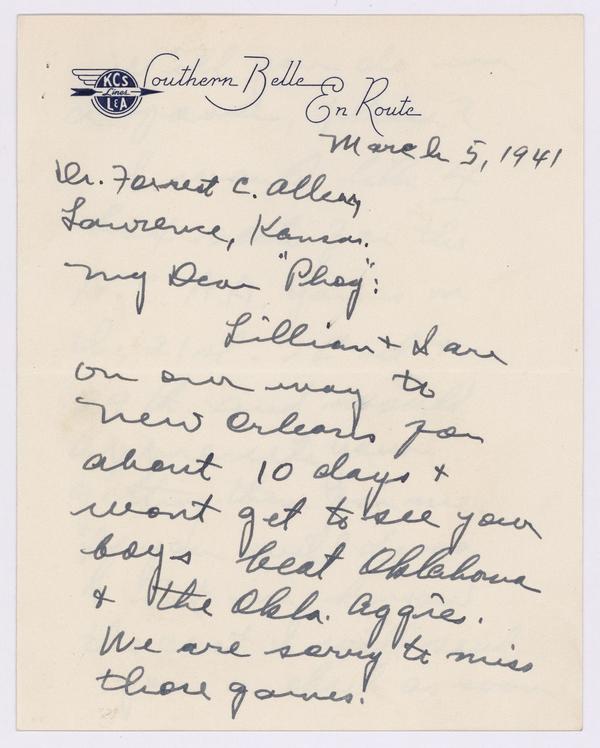 KCS
Lines
L&A
Southern Belle
En Route
March 5, 1941
Dr. Forrest C. Allen,
Lawrence, Kansas.
My Dear "Phog":
Lillian & I are
on our way to
New Orleans for
about 10 days &
wont get to see your
boys beat Oklahoma
& the Okla. Aggies.
We are sorry to miss
those games.